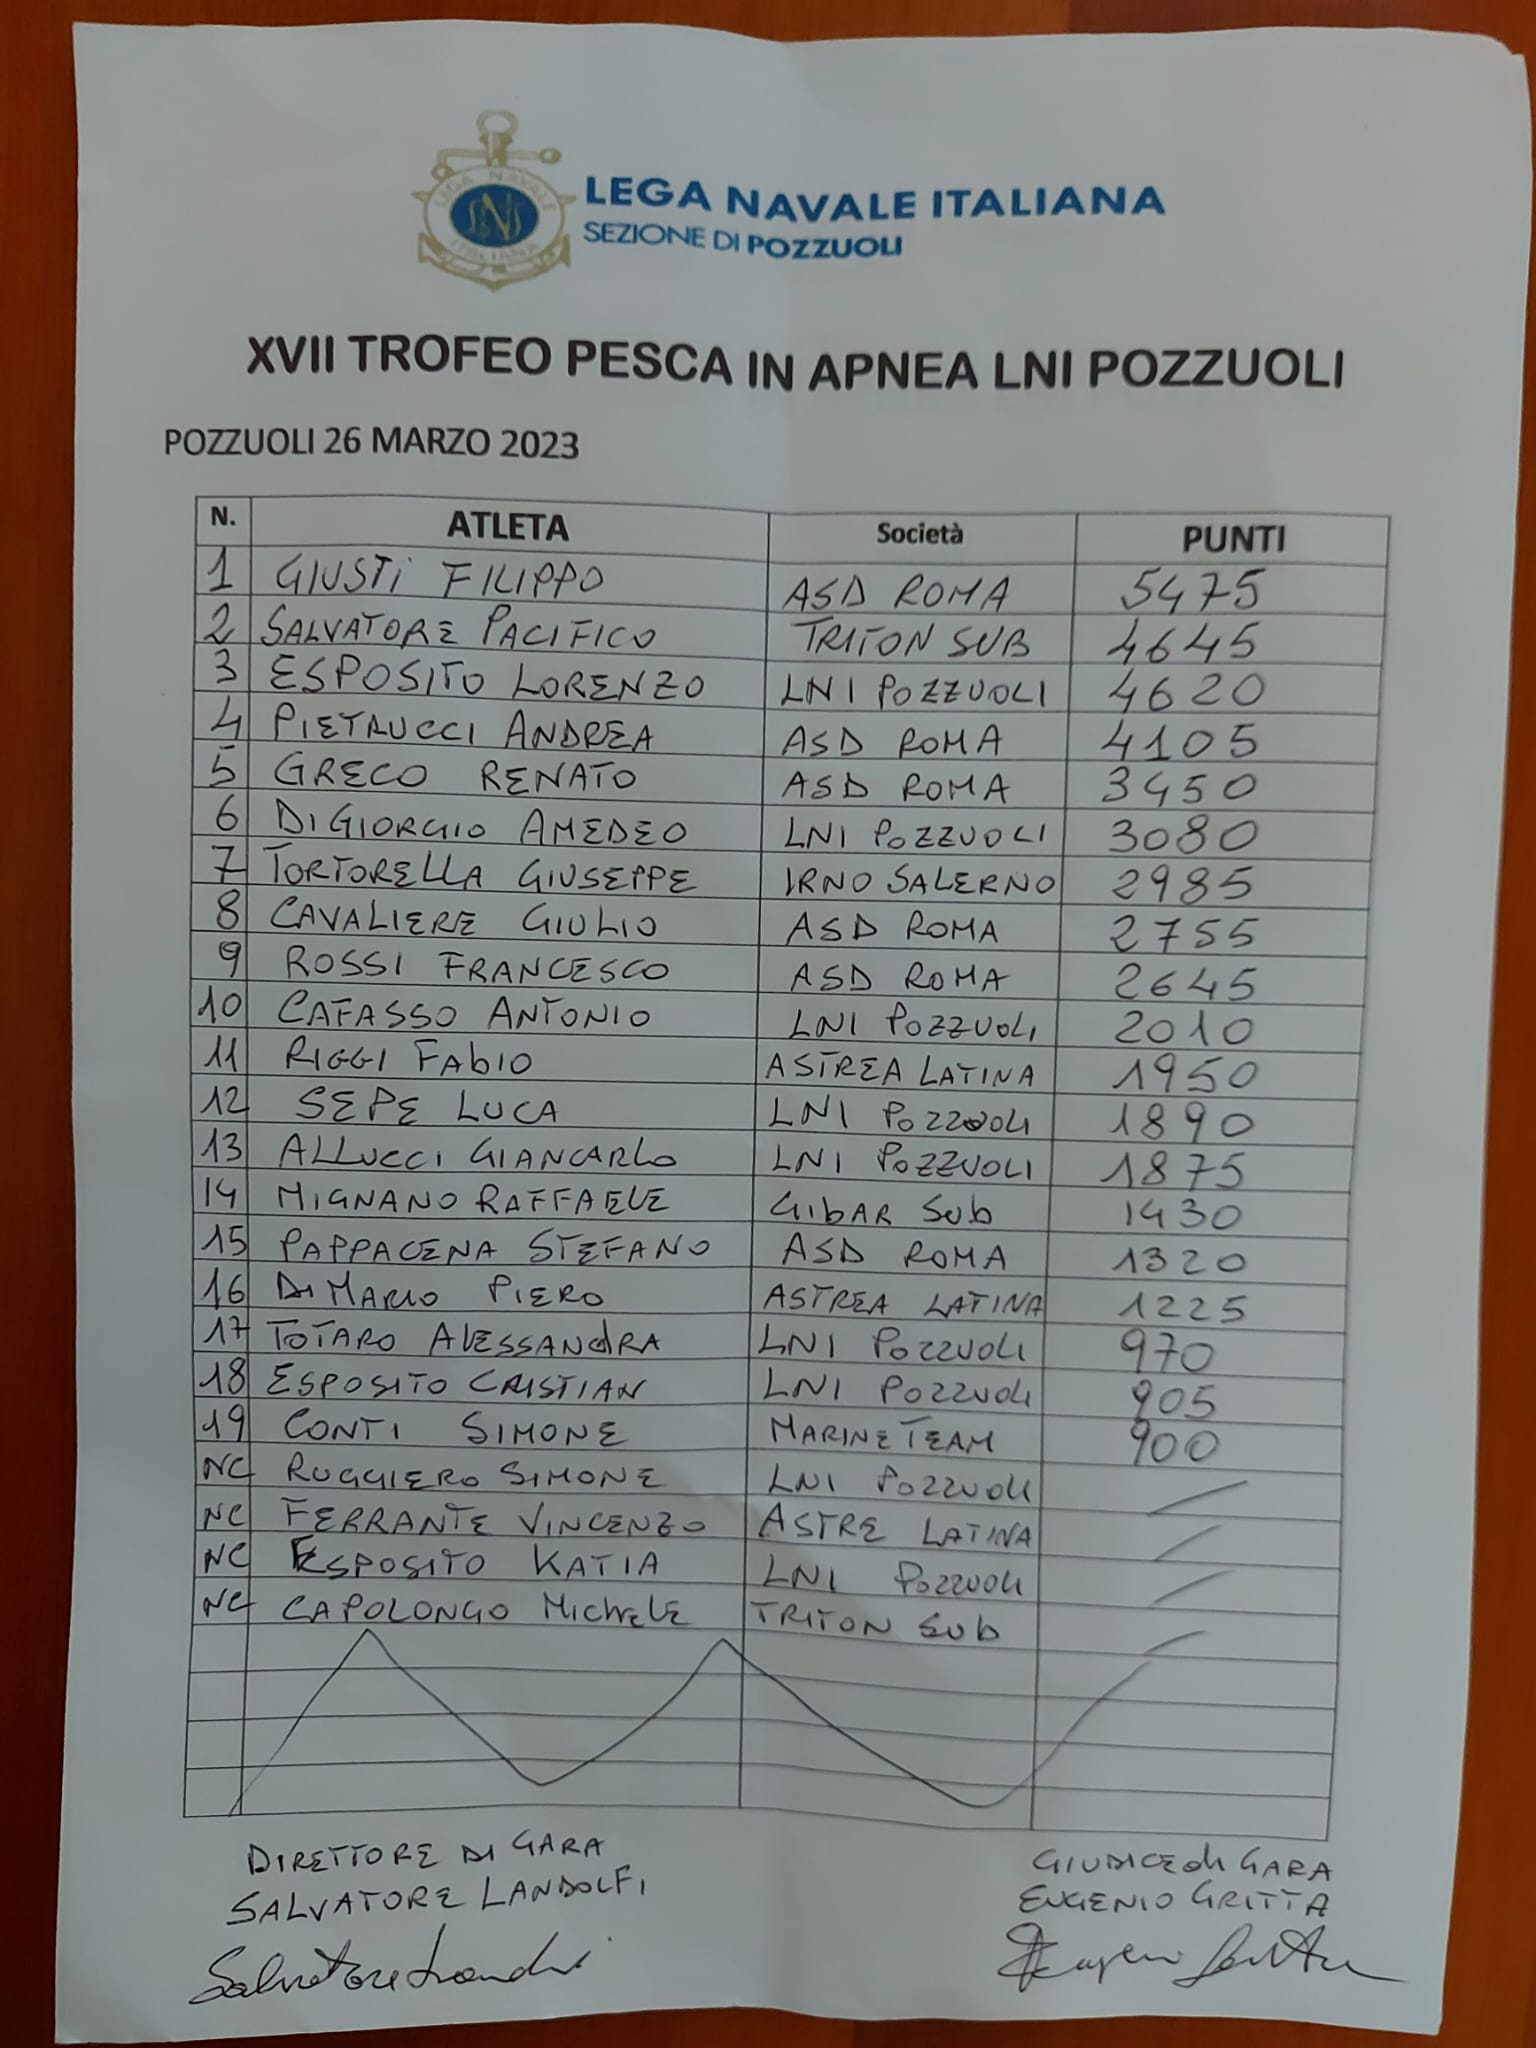 LEGA NAVALE ITALIANA
LNI
LEGA NAVALE ITALIANA
SEZIONE DI POZZUOLI
XVII TROFEO PESCA IN APNEA LNI POZZUOLI
POZZUOLI 26 MARZO 2023
N. ATLETA Società PUNTI
1 GIUSTI FILIPPO ASD ROMA 5475
2 SALVATORE PACIFICO TRITON SUB 4645
3 ESPOSITO LORENZO LNI POZZUOLI 4620
4 PIETRUCCI ANDREA ASD ROMA 4105
5 GRECO RENATO ASD ROMA 3450
6 DI GIORGIO AMEDEO LNI POZZUOLI 3080
7 TORTORELLA GIUSEPPE IRNO SALERNO 2985
8 CAVALIERE GIULIO ASD ROMA 2755
9 ROSSI FRANCESCO ASD ROMA 2645
10 CAFASSO ANTONIO LNI POZZUOLI 2010
11 RIGGI FABIO ASTREA LATINA 1950
12 SEPE LUCA LNI POZZUOLI 1890
13 ALLUCCI GIANCARLO LNI POZZUOLI 1875
14 MIGNANO RAFFAELE GIBAR SUB 1430
15 PAPPACENA STEFANO ASD ROMA 1320
16 DI MARIO PIERO ASTREA LATINA 1225
17 TOTARO ALESSANDRA LNI POZZUOLI 970
18 ESPOSITO CRISTIAN LNI POZZUOLI 905
19 CONTI SIMONE MARINE TEAM 900
NC RUGGIERO SIMONE LNI POZZUOLI /
NC FERRANTE VINCENZO ASTRE LATINA /
NC ESPOSITO KATIA LNI POZZUOLI /
NC CAPOLONGO MICHELE TRITON SUB /
DIRETTORE DI GARA
SALVATORE LANDOLFI
Salvatore Landolfi
GIUDICE di GARA
EUGENIO GRITTA
Eugenio Gritta